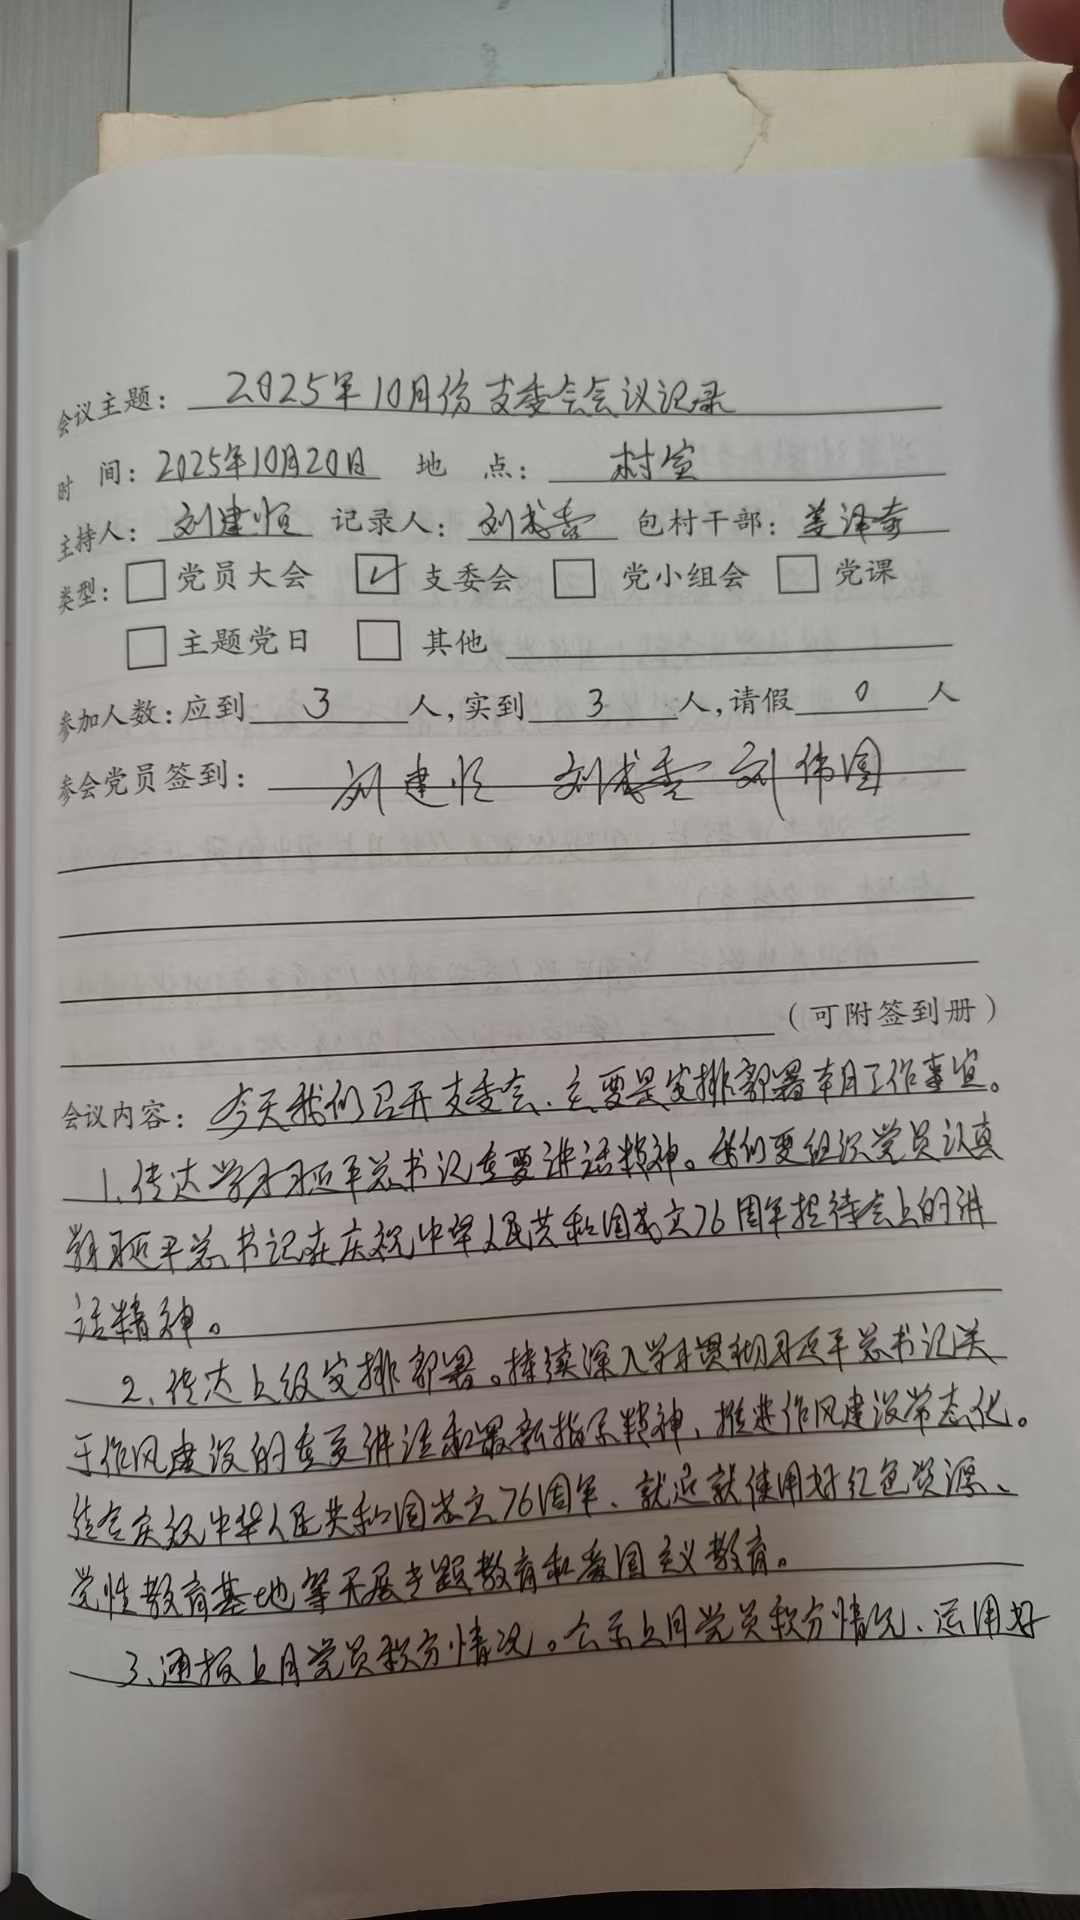 会议主题：2025年10月份支委会会议记录
时 间：2025年10月20日 地 点：村室
主持人：刘建恒 记录人：刘成香 包村干部：姜泽奇
类型：□党员大会 ☑支委会 □党小组会 □党课
□主题党日 □其他
参加人数：应到3人，实到3人，请假0人
参会党员签到：刘建恒 刘成香 刘伟国
（可附签到册）
会议内容：今天我们召开支委会、主要是安排部署本月工作事宜。
1、传达学习习近平总书记重要讲话精神。我们要组织党员认真
学习习近平总书记在庆祝中华人民共和国成立76周年招待会上的讲
话精神。
2、传达上级安排部署。持续深入学习贯彻习近平总书记关
于作风建设的重要讲话和最新指示精神、推进作风建设常态化。
结合庆祝中华人民共和国成立76周年、就近就便用好红色资源、
党性教育基地等开展主题教育和爱国主义教育。
3、通报上月党员积分情况。公示上月党员积分情况、运用好